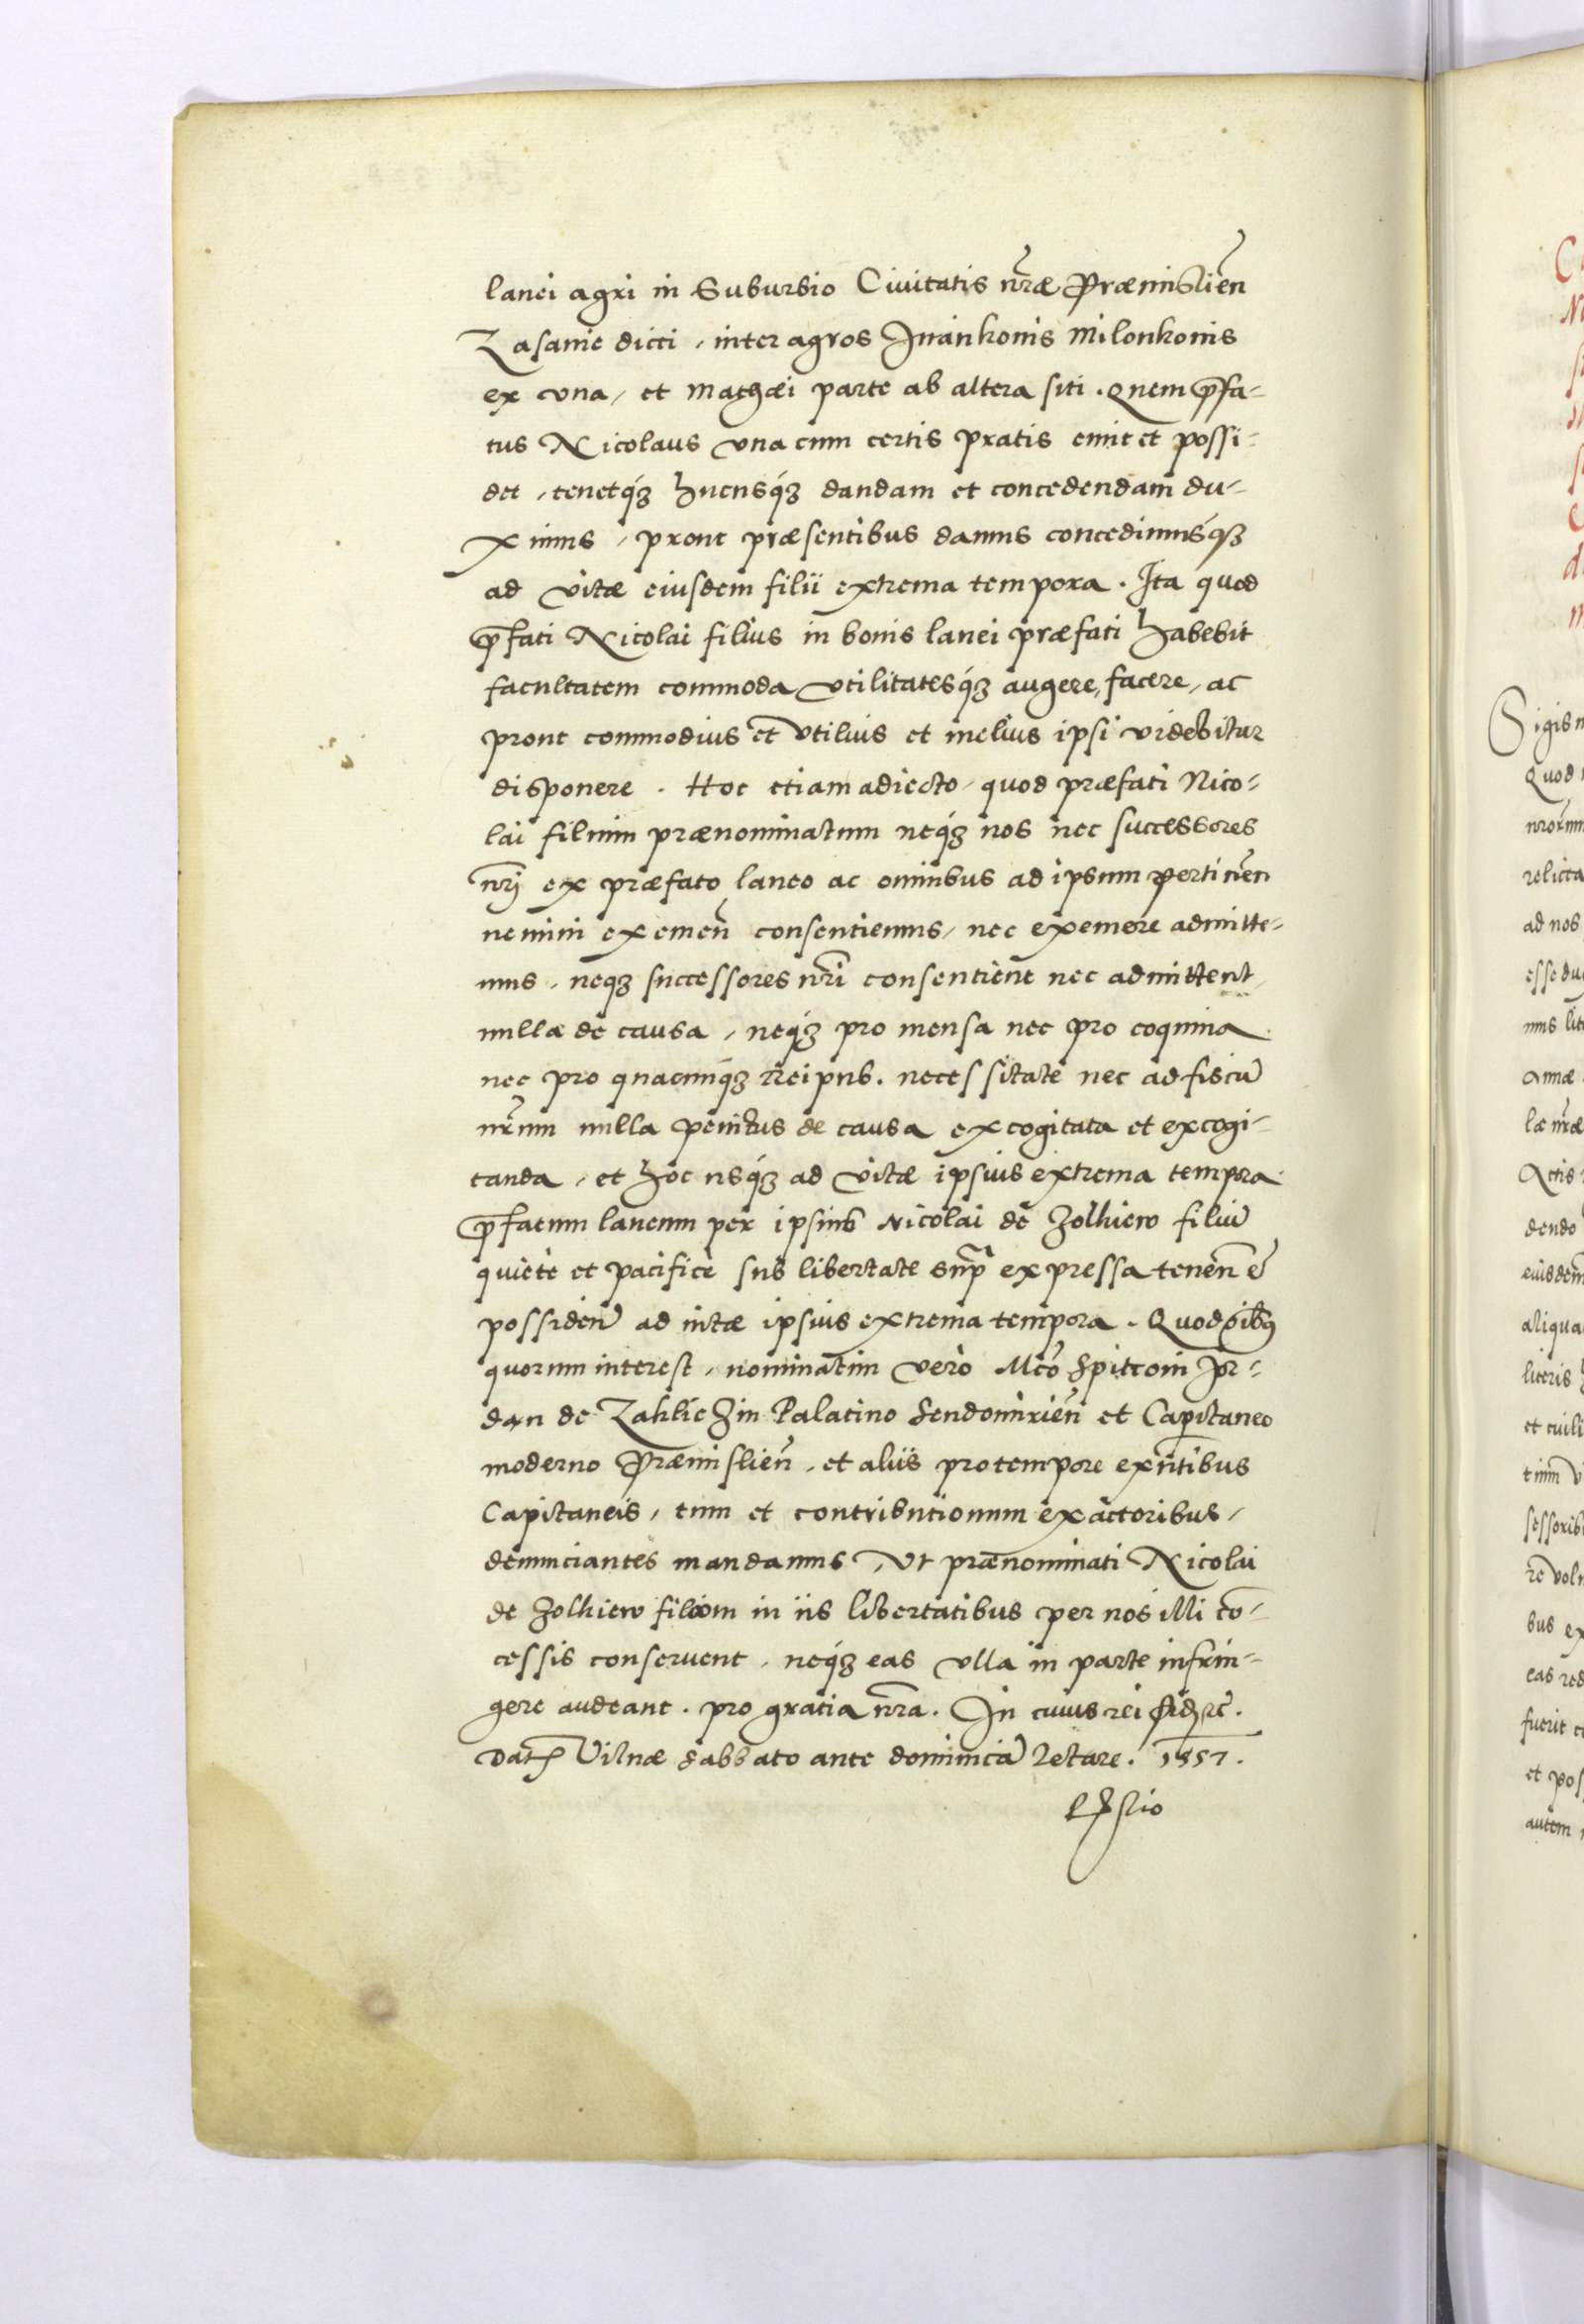 lanei agri in Suburbio Ciuitatis nr̃æ Præmislien̄
Zasanie dicti, inter agros Iwankonis Milonkonis
ex vna, et Mathæi parte ab altera siti. Quem p̄fa-
tus Nicolaus vna cum certis pratis emit et possi-
det, tenetq́ꝫ hucusq́ꝫ dandam et concedendam du-
ximus, prout præsentibus damus concedimusq́ꝫ
ad vitæ eiusdem filii extrema tempora. Ita quod
p̄fati Nicolai filius in bonis lanei præfati habebit
facultatem commoda vtilitatesq́ꝫ augere, facere, ac
prout commodius et vtilius et melius ipsi videbitur
disponere. Hoc etiam adiecto, quod præfati Nico-
lai filium prænominatum neq́ꝫ nos nec successores
nr̃i ex præfato laneo ac omnibus ad ipsum pertinen̄
nemini exemen̄ consentiemus, nec exemere admitte-
mus, neqꝫ successores nr̃i consentient nec admittent
nulla de causa, neq́ꝫ pro mensa nec pro coquina
nec pro quacunq́ꝫ Reipub. necessitate nec ad fiscū
nr̃um nulla penitus de causa excogitata et excogi-
tanda, et hoc usq́ꝫ ad vitæ ipsius extrema tempora
p̄fatum laneum per ipsius Nicolai de Zolkiew filiū
quiete et pacifice sub libertate sup̄ expressa tenen̄ et
possiden̄ ad uitæ ipsius extrema tempora. Quod oībꝰ
quorum interest, nominatim vero Mc̄o Spitcom Jor-
dan de Zakliczin Palatino Sendomirien̄ et Capitaneo
moderno Præmislien̄, et aliis pro tempore exn̄tibus
Capitaneis, tum et contributionum exactoribus,
denunciantes mandamus, Vt prænominati Nicolai
de Zolkiew filium in iis libertatibus per nos illi cō-
cessis conseruent, neq́ꝫ eas vlla in parte infrin-
gere audeant. pro gratia nr̃a. In cuius rei fidꝫ etc̄.
Dat̄ Vilnæ Sabbato ante dominicā Letare. 1557.